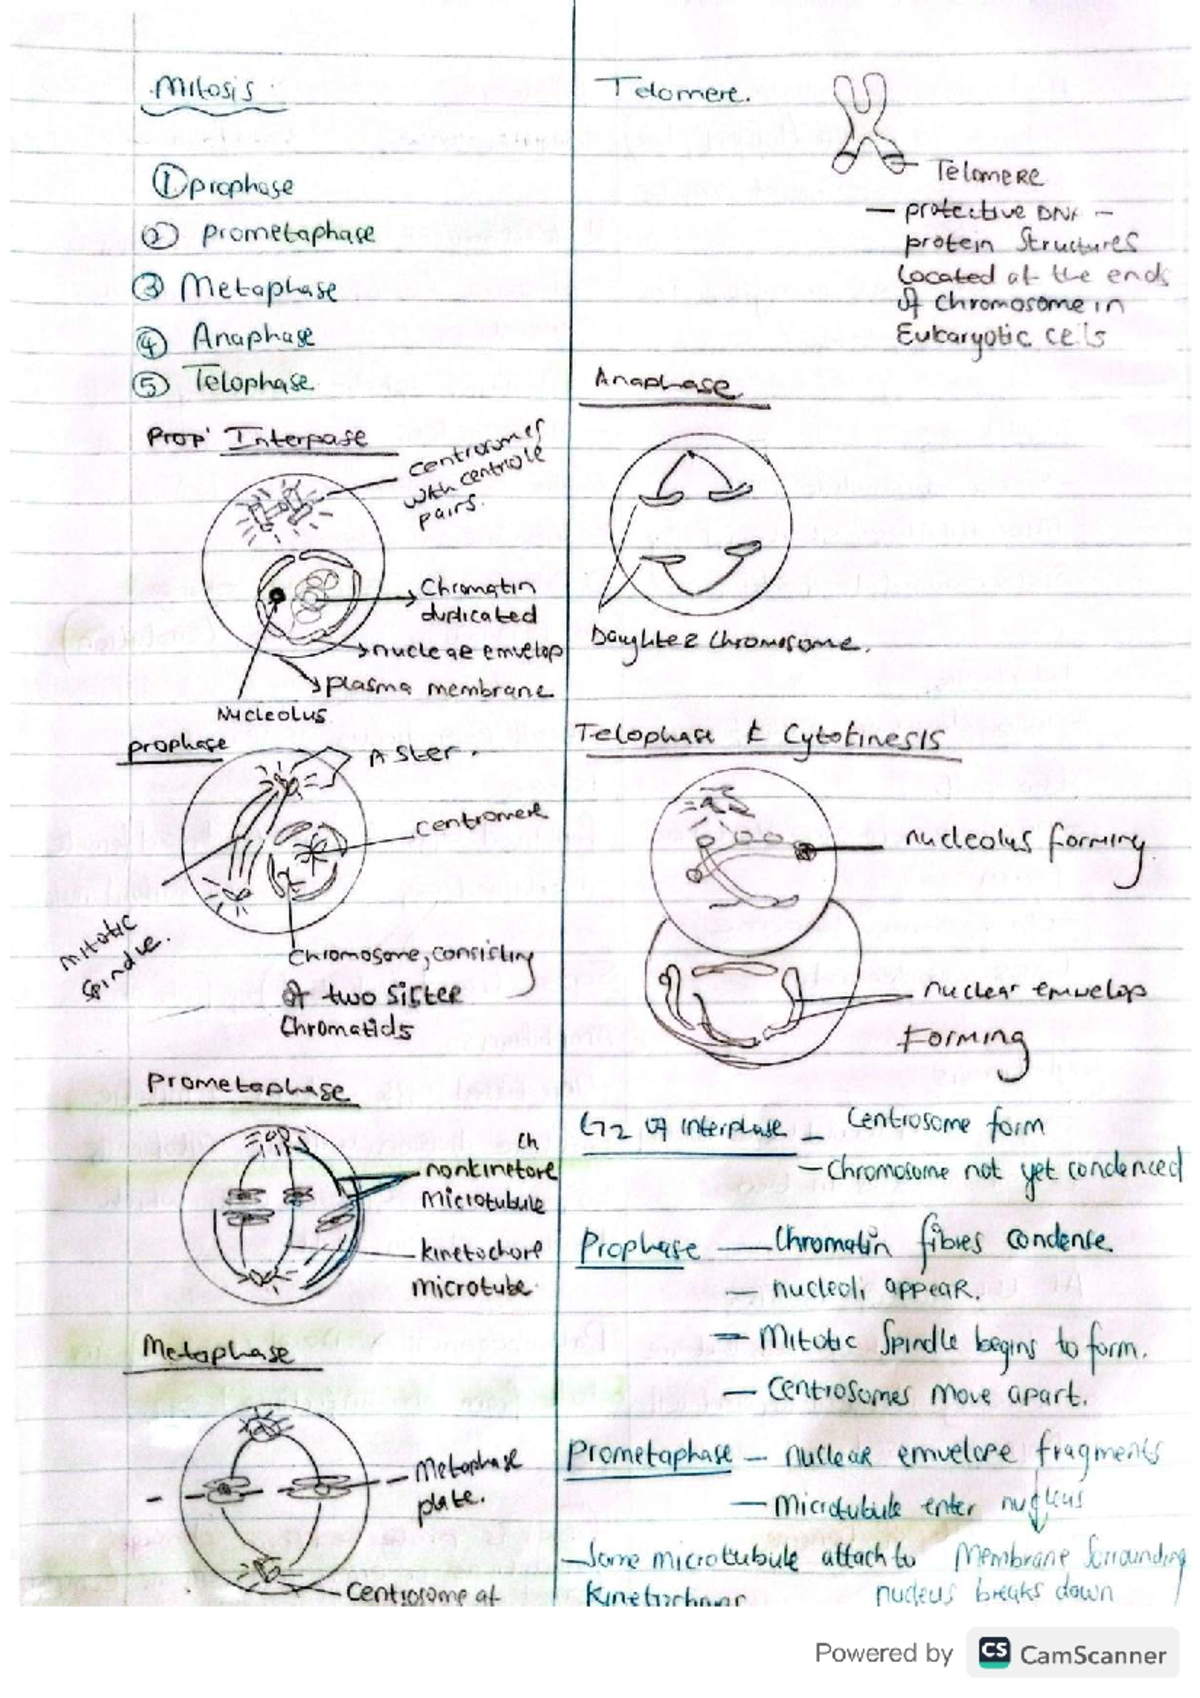 Mitosis
① prophase
② prometaphase
③ Metaphase
④ Anaphase
⑤ Telophase
Prop' Interpase
centrosomes
with centriole
pairs.
Chromatin
duplicated
nuclear envelop
plasma membrane
Nucleolus
prophase
Aster.
centromere
mitotic
spindle.
Chromosome, consisting
of two sister
Chromatids
Prometaphase
Ch
nonkinetore
microtubule
kinetochore
microtube.
Metaphase
Metaphase
plate.
Centrosome at
Telomere.
Telomere
— protective DNA –
protein structures
located at the ends
of chromosome in
Eukaryotic cells
Anaphase
Daughter chromosome.
Telophase & Cytokinesis
nucleolus forming
nuclear envelop
Forming
G2 of interphase – Centrosome form
– Chromosome not yet condenced
Prophase — Chromatin fibres condense
— nucleoli appear.
= Mitotic Spindle begins to form.
— Centrosomes move apart.
Prometaphase — nuclear envelope fragments
— Microtubule enter nucleus
– Some microtubule attach to Membrane surrounding
Kinetochore nucleus breaks down
Powered by CS CamScanner